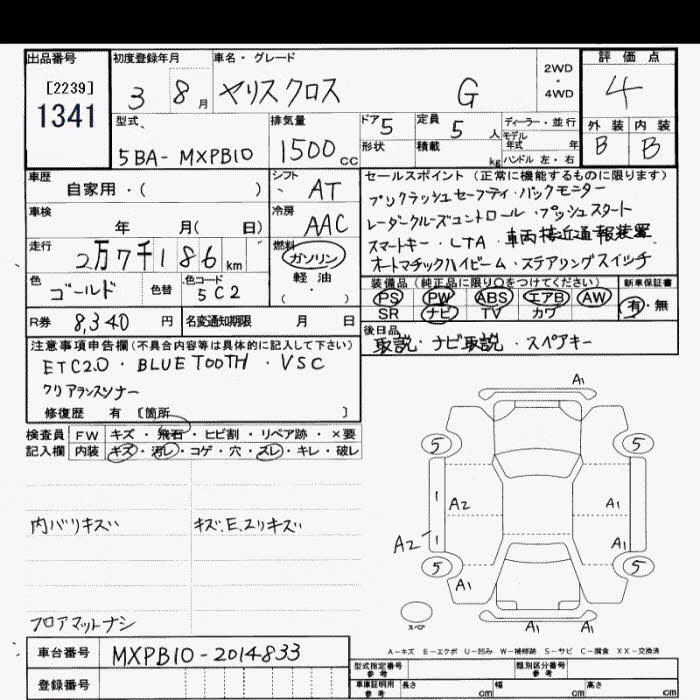 出品番号
[2239]
1341
初度登録年月
3 8月
車名・グレード
ヤリスクロス G
2WD
・
4WD
評価点
4
外装 内装
B B
型式
5BA-MXPB10
排気量
1500cc
ドア 5
定員 5人
形状
積載 kg
ディーラー・並行
モデル
年式 年
ハンドル 左・右
車歴
自家用・( )
シフト
AT
車検
年 月( 日)
冷房
AAC
走行
2万7千186km
燃料
ガソリン
軽油
( )
色
ゴールド
色替
色コード
5C2
R券 8,340円
名変通知期限 月 日
セールスポイント(正常に機能するものに限ります)
プリクラッシュセーフティ・バックモニター
レーダークルーズコントロール・プッシュスタート
スマートキー・LTA・車両接近通報装置
オートマチックハイビーム・ステアリングスイッチ
装備品(純正品に限り○をつけてください)
PS PW ABS エアB AW
SR ナビ TV カワ
新車保証書
有・無
後日品
取説・ナビ取説・スペアキー
注意事項申告欄(不具合内容等は具体的に記入して下さい)
ETC2.0・BLUETOOTH・VSC
クリアランスソナー
修復歴 有 [箇所 ]
検査員
記入欄
FW キズ・飛石・ヒビ割・リペア跡・×要
内装 キズ・汚レ・コゲ・穴・スレ・キレ・破レ
内バリキズ
キズ.E.スリキズ
フロアマットナシ
A1
5 5
1 A2 A1
A2 1 A1
5 5
A1
スペア
A1
A-キズ E-エクボ U-凹み W-補修跡 S-サビ C-腐食 XX-交換済
車台番号 MXPB10-2014833
登録番号
型式指定番号
参考
類別区分番号
参考
車庫証明用
参考
長さ cm 幅 cm 高さ cm